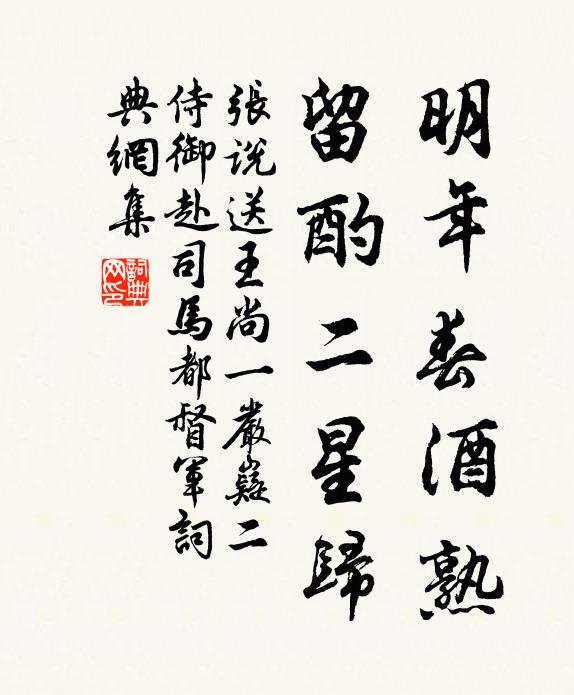 明年春酒熟
留酌二星歸
張說送王尚一嚴嶷二
侍御赴司馬都督軍詞
典網集
詞典网印